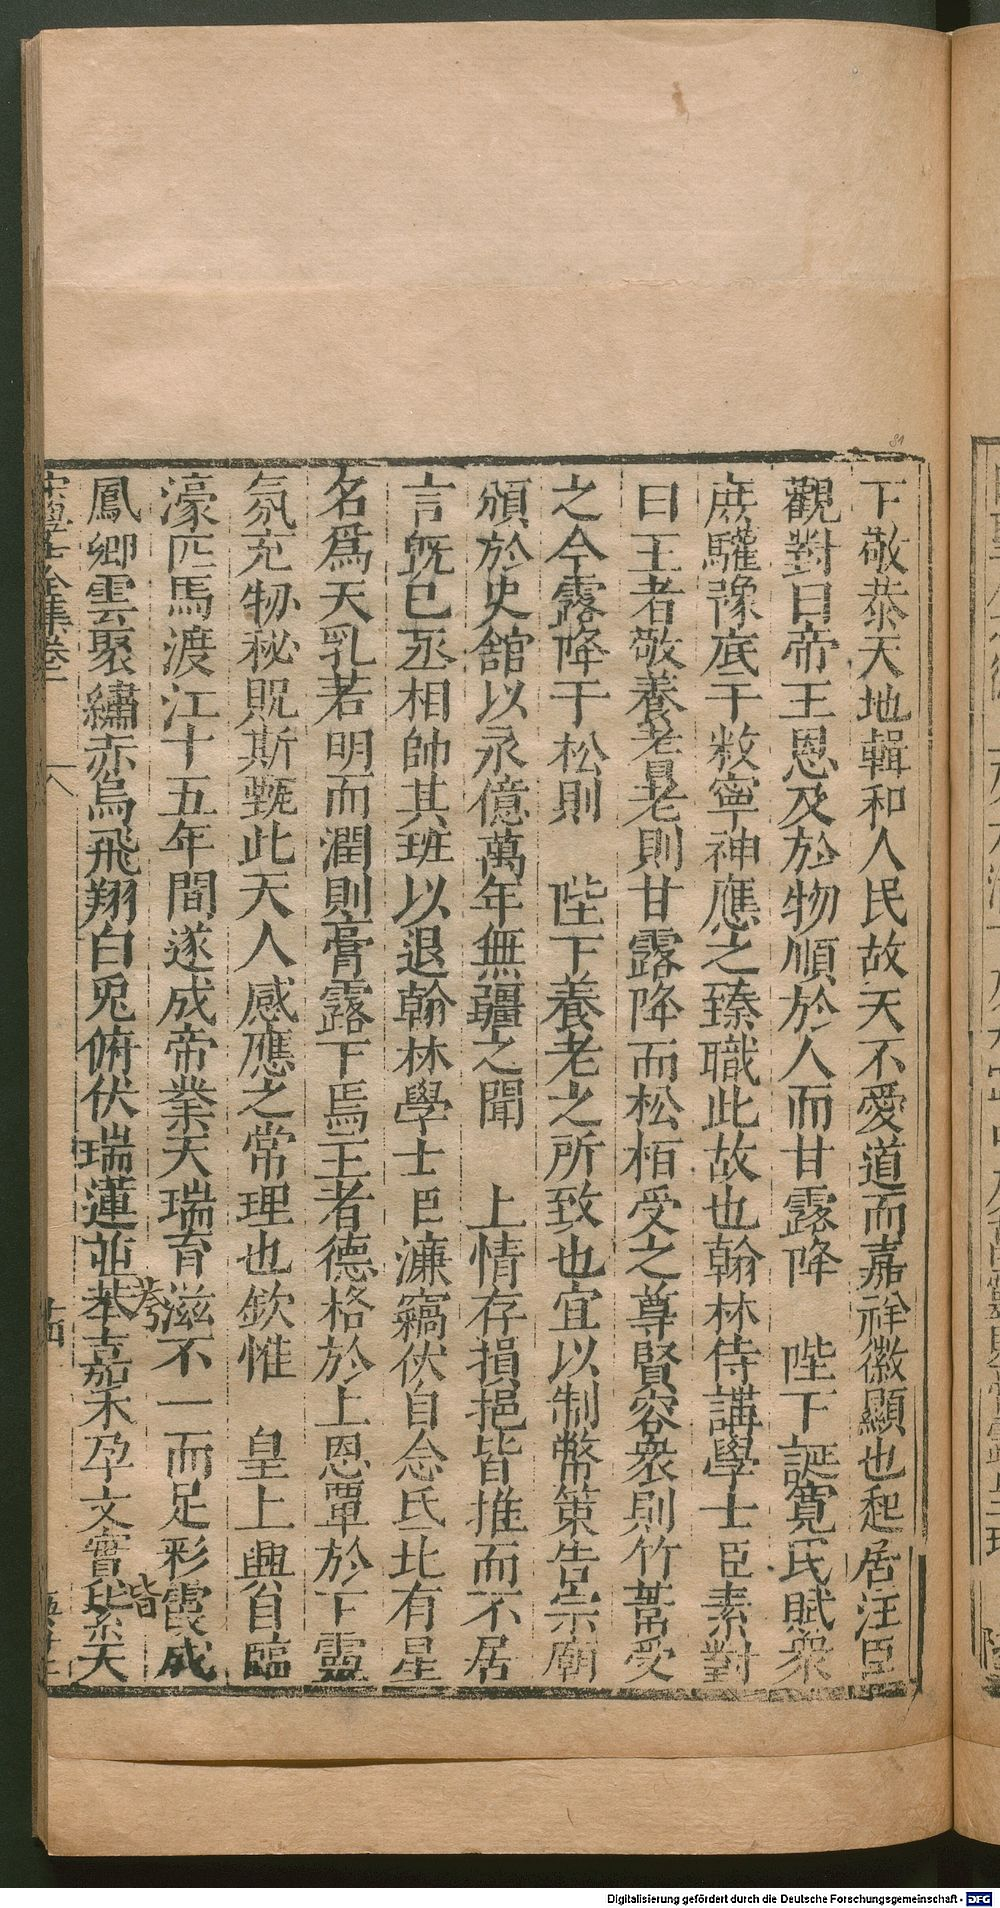 下敬恭天地輯和人民故天不愛道而嘉祥徽顯也起居注臣
觀對曰帝王恩及於物順於人而甘露降 陛下誕寛民賦衆
庶驩豫底于敉寧神應之臻職此故也翰林侍講學士臣素對
曰王者敬養耆老則甘露降而松栢受之尊賢容衆則竹葦受
之今露降于松則 陛下養老之所致也宜以制幣策告宗廟
頒於史舘以永億萬年無疆之聞 上情存損挹皆推而不居
言旣已丞相帥其班以退翰林學士臣濂竊伏自念氐北有星
名爲天乳若明而潤則膏露下焉王者德格於上恩覃於下靈
氛充牣秘貺斯甄此天人感應之常理也欽惟 皇上興自臨
濠匹馬渡江十五年間遂成帝業天瑞育滋不一而足彩霞成
鳳卿雲聚繡赤烏飛翔白兎俯伏瑞蓮並蔕嘉禾孕文實
宋學士全集卷一 八
Digitalisierung gefördert durch die Deutsche Forschungsgemeinschaft - DFG